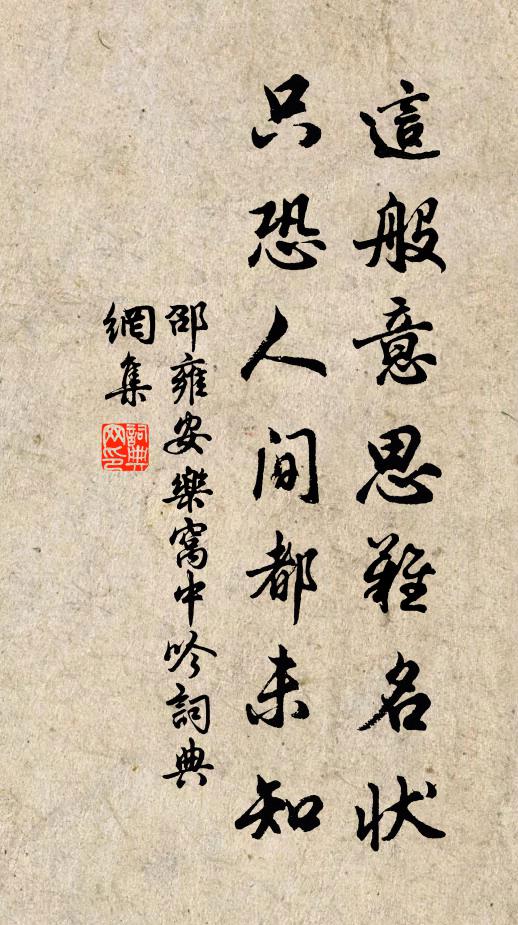 這般意思難名狀
只恐人間都未知
邵雍安樂窩中吟詞典
網集
詞典
网印